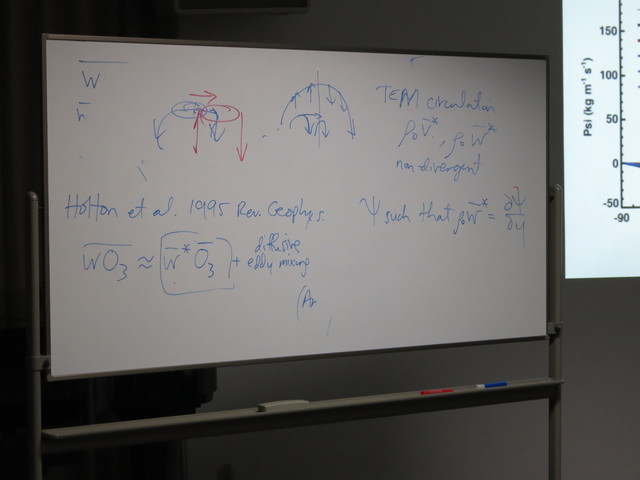 W̅
TEM circulation
ρ₀ v̅*, ρ₀ w̅*
nondivergent
Holton et al. 1995 Rev. Geophys.
Ψ such that ρ₀w̅* = ∂Ψ/∂y
W̅O̅₃ ≈ W̅* O̅₃ + diffusive
eddy mixing
150
100
50
0
-50
-90
Psi (kg m⁻¹ s⁻¹)